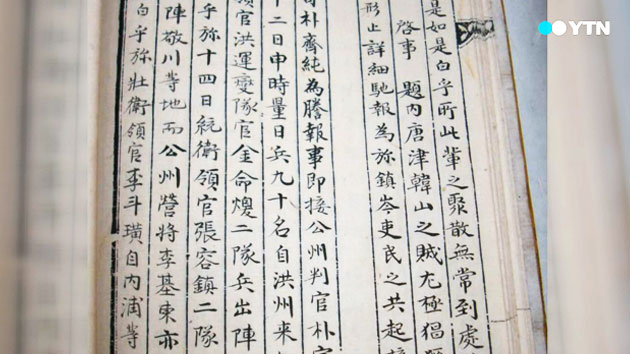 YTN
是如是白乎所此輩之聚散無常到處
啓事 題內唐津韓山之賊尤極猖
形止詳細馳報為弥鎮岑吏民之共起
朴齊純為謄報事即接公州判官朴
十二日申時量日兵九十名自洪州來
領官洪運燮隊官金命煖二隊兵出陣
乎弥十四日統衛領官張容鎮二隊
陣敬川等地而公州營將李基東亦
白乎弥壯衛領官李斗璜自內浦等